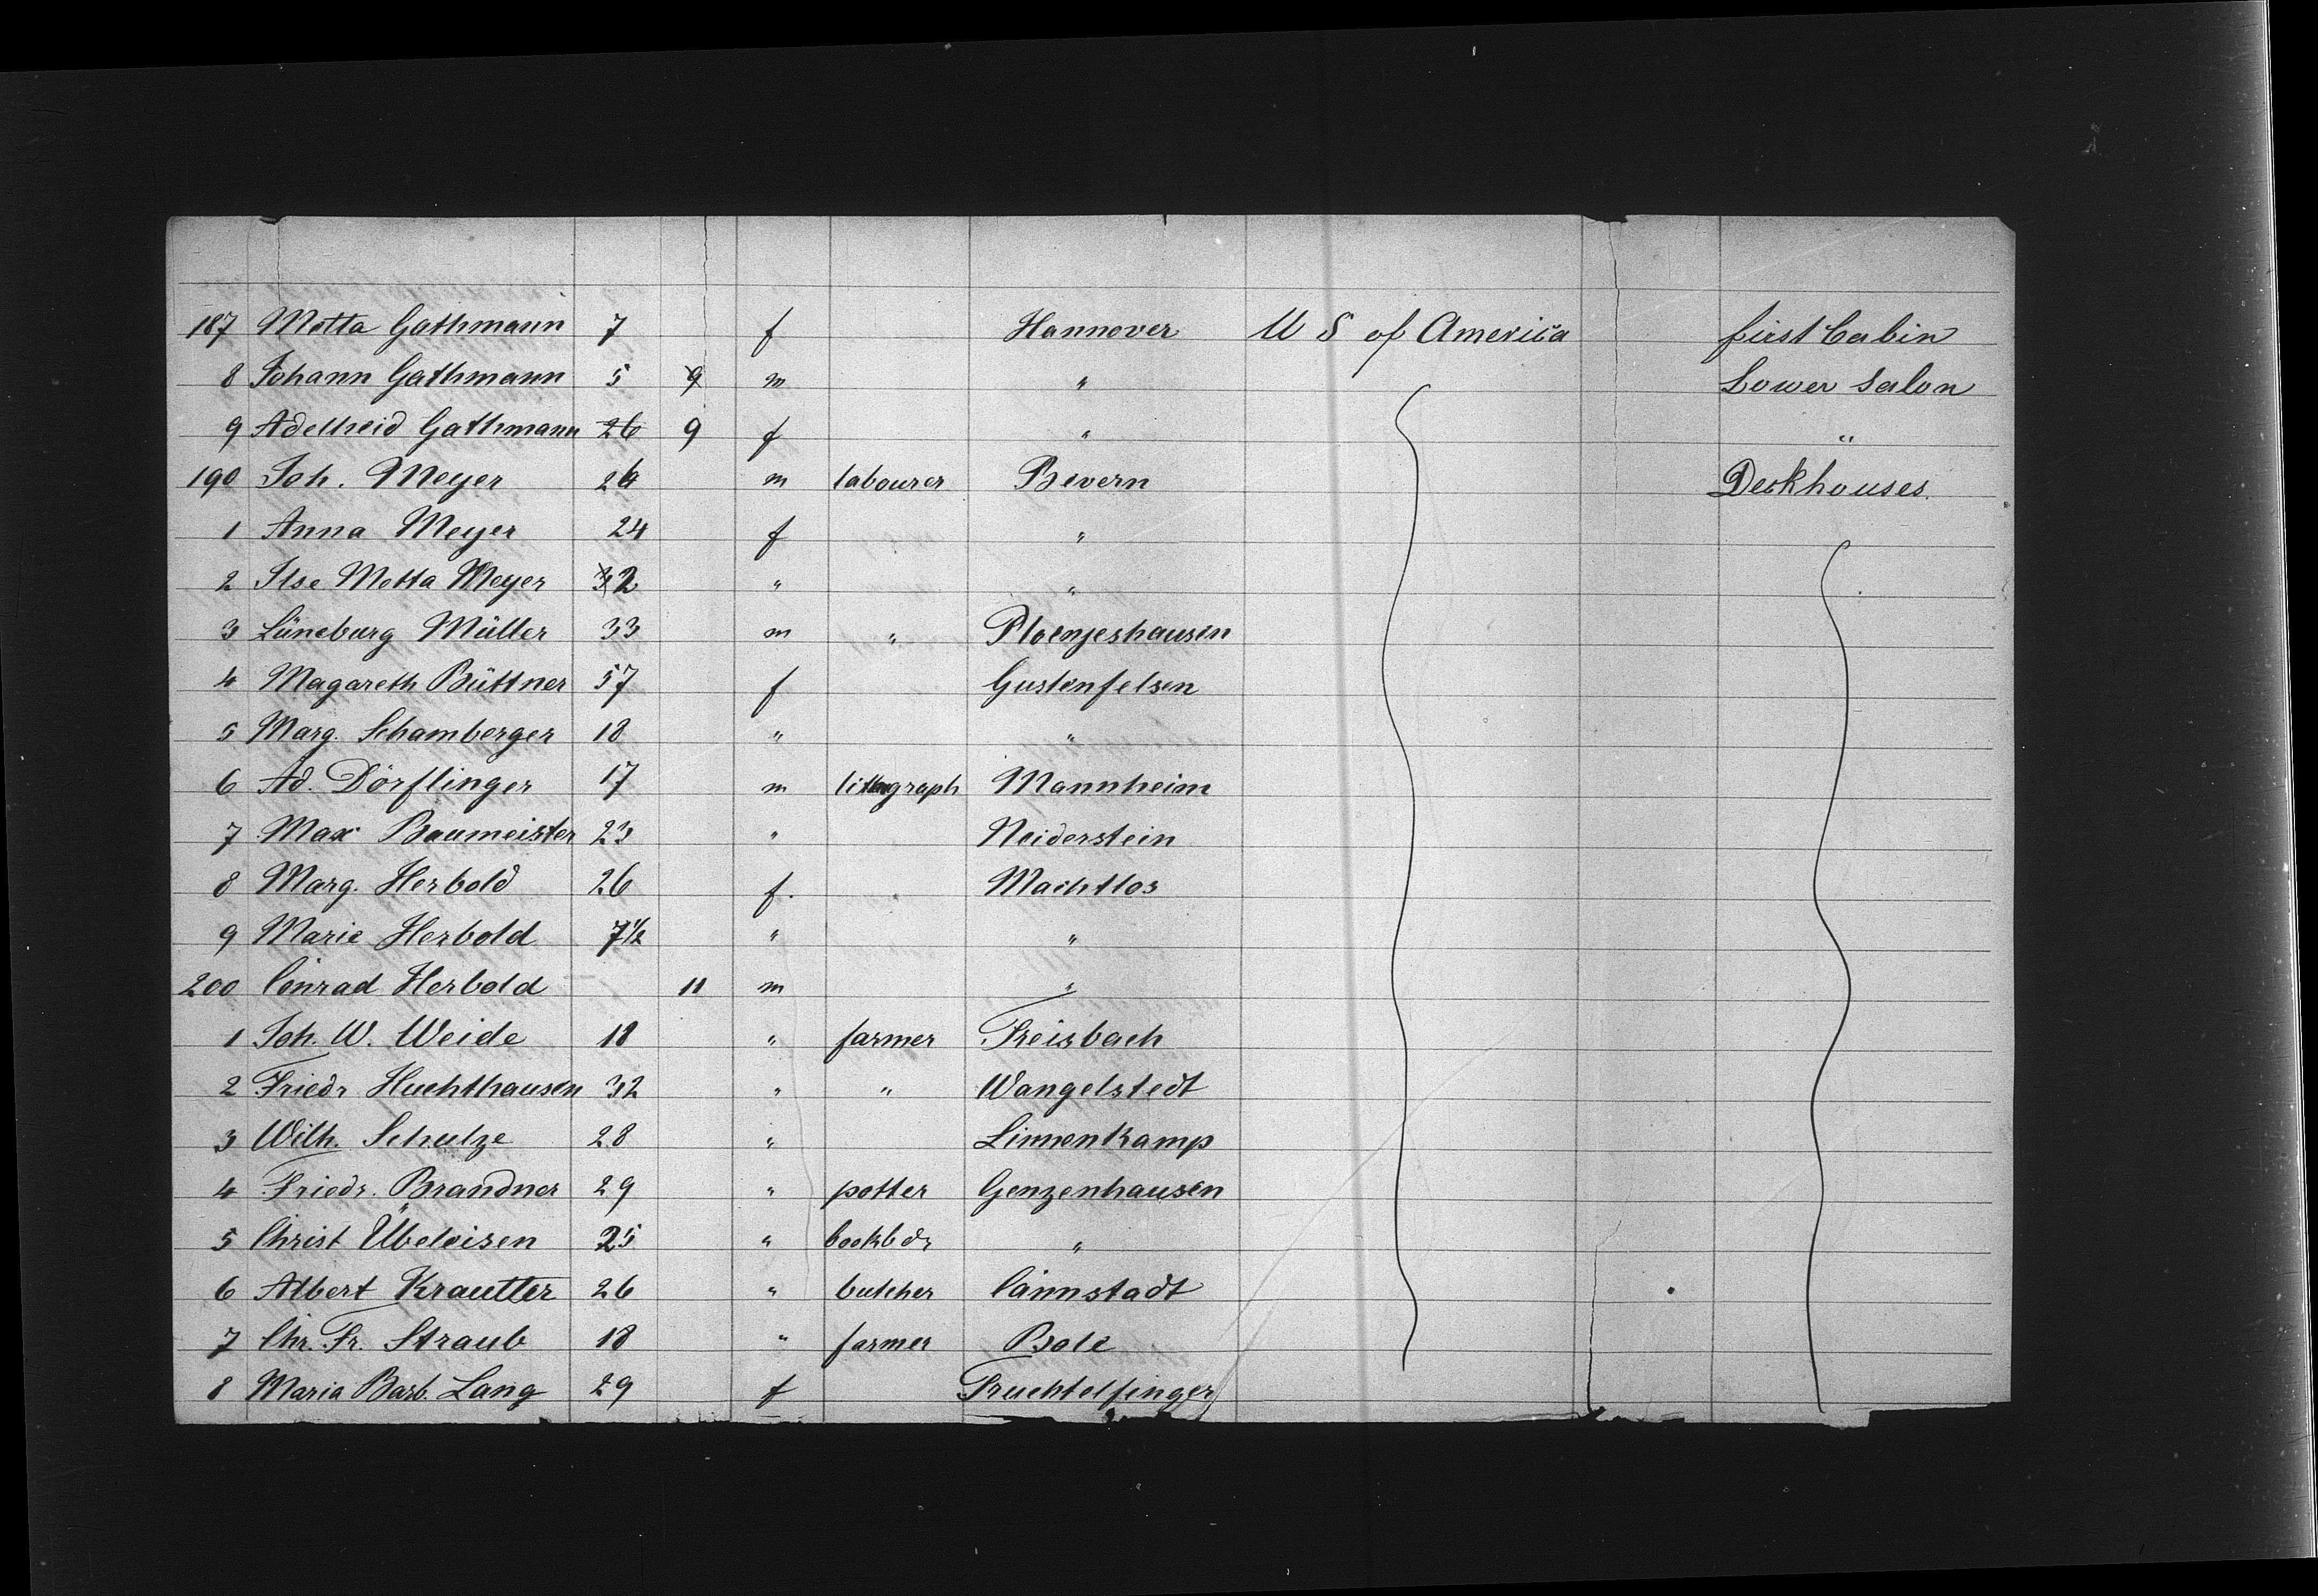 187 Metta Gathmann 7 f Hannover U S of America first Cabin
8 Johann Gathmann 5 9 m " Lower Salon
9 Adelheid Gathmann 26 9 f " "
190 Joh. Meyer 26 m labourer Bevern Deckhouses.
1 Anna Meyer 24 f "
2 Ilse Metta Meyer 32 " "
3 Lüneburg Müller 33 m " Ploenjeshausen
4 Magareth Büttner 57 f Gustenfelsen
5 Marg. Schamberger 18 " "
6 Ad. Dörflinger 17 m lithograph Mannheim
7 Max Baumeister 23 " Neiderstein
8 Marg. Herbold 26 f. Machtlos
9 Marie Herbold 7 1/2 " "
200 Conrad Herbold 11 m "
1 Joh. W. Weide 18 " farmer Freisbach
2 Friedr Huchthausen 32 " " Wangelstedt
3 Wilh. Schulze 28 " Linnenkamp
4 Friedr. Brandner 29 " potter Genzenhausen
5 Christ Übeleisen 25 " bookbdr "
6 Albert Krautter 26 " butcher Cannstadt
7 Chr. Fr. Straub 18 " farmer Bole
8 Maria Barb. Lang 29 f Truchtelfinger